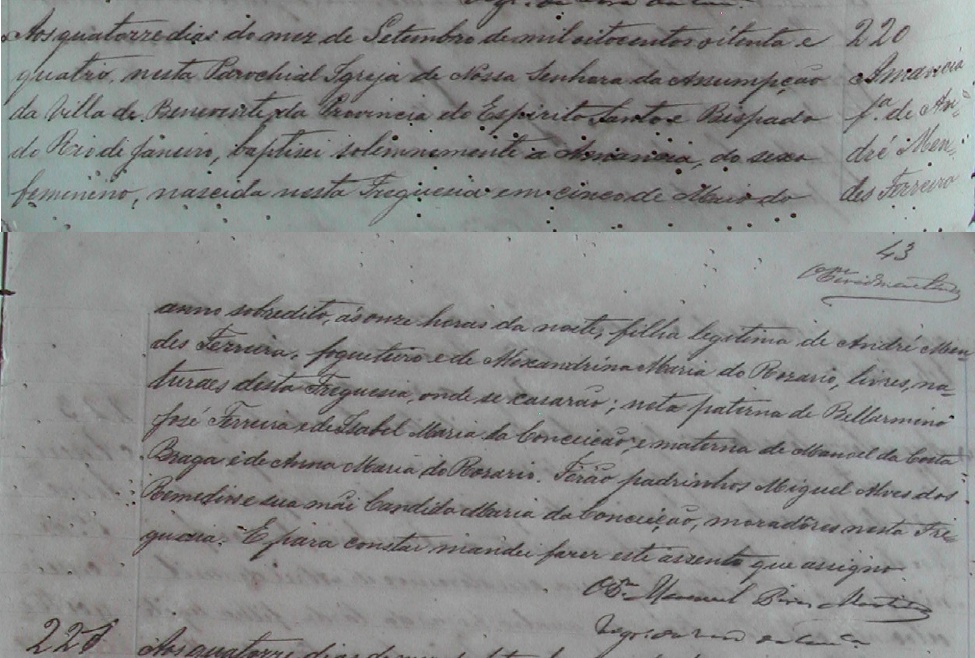 Aos quatorze dias do mez de Setembro de mil oitocentos oitenta e
quatro, nesta Parochial Igreja de Nossa Senhora da Assumpção
da Villa de Benevente, da Provincia do Espirito Santo e Bispado
do Rio de Janeiro, baptisei solemnemente a Amancia, do sexo
femenino, nascida nesta Freguesia em cinco de Maio do
220
Amancia
fª. de An-
dré Men-
des Ferreira
43
anno sobredito, ás onze horas da noite, filha legitima de André Men-
des Ferreira, fogueteiro e de Alexandrina Maria do Rozario, livres, na-
turaes desta Freguesia, onde se casarão; neta paterna de Bellarmino
José Ferreira e de Isabel Maria da Conceição, e materna de Manoel da Costa
Braga e de Anna Maria do Rosario. Forão padrinhos Miguel Alves dos
Remedios e sua mãi Candida Maria da Conceição, moradôres nesta Fre-
guesia. E para constar mandei fazer este assento que assigno.
O Pe. Manuel Pires Martins
221
Aos quatorze dias do mez de